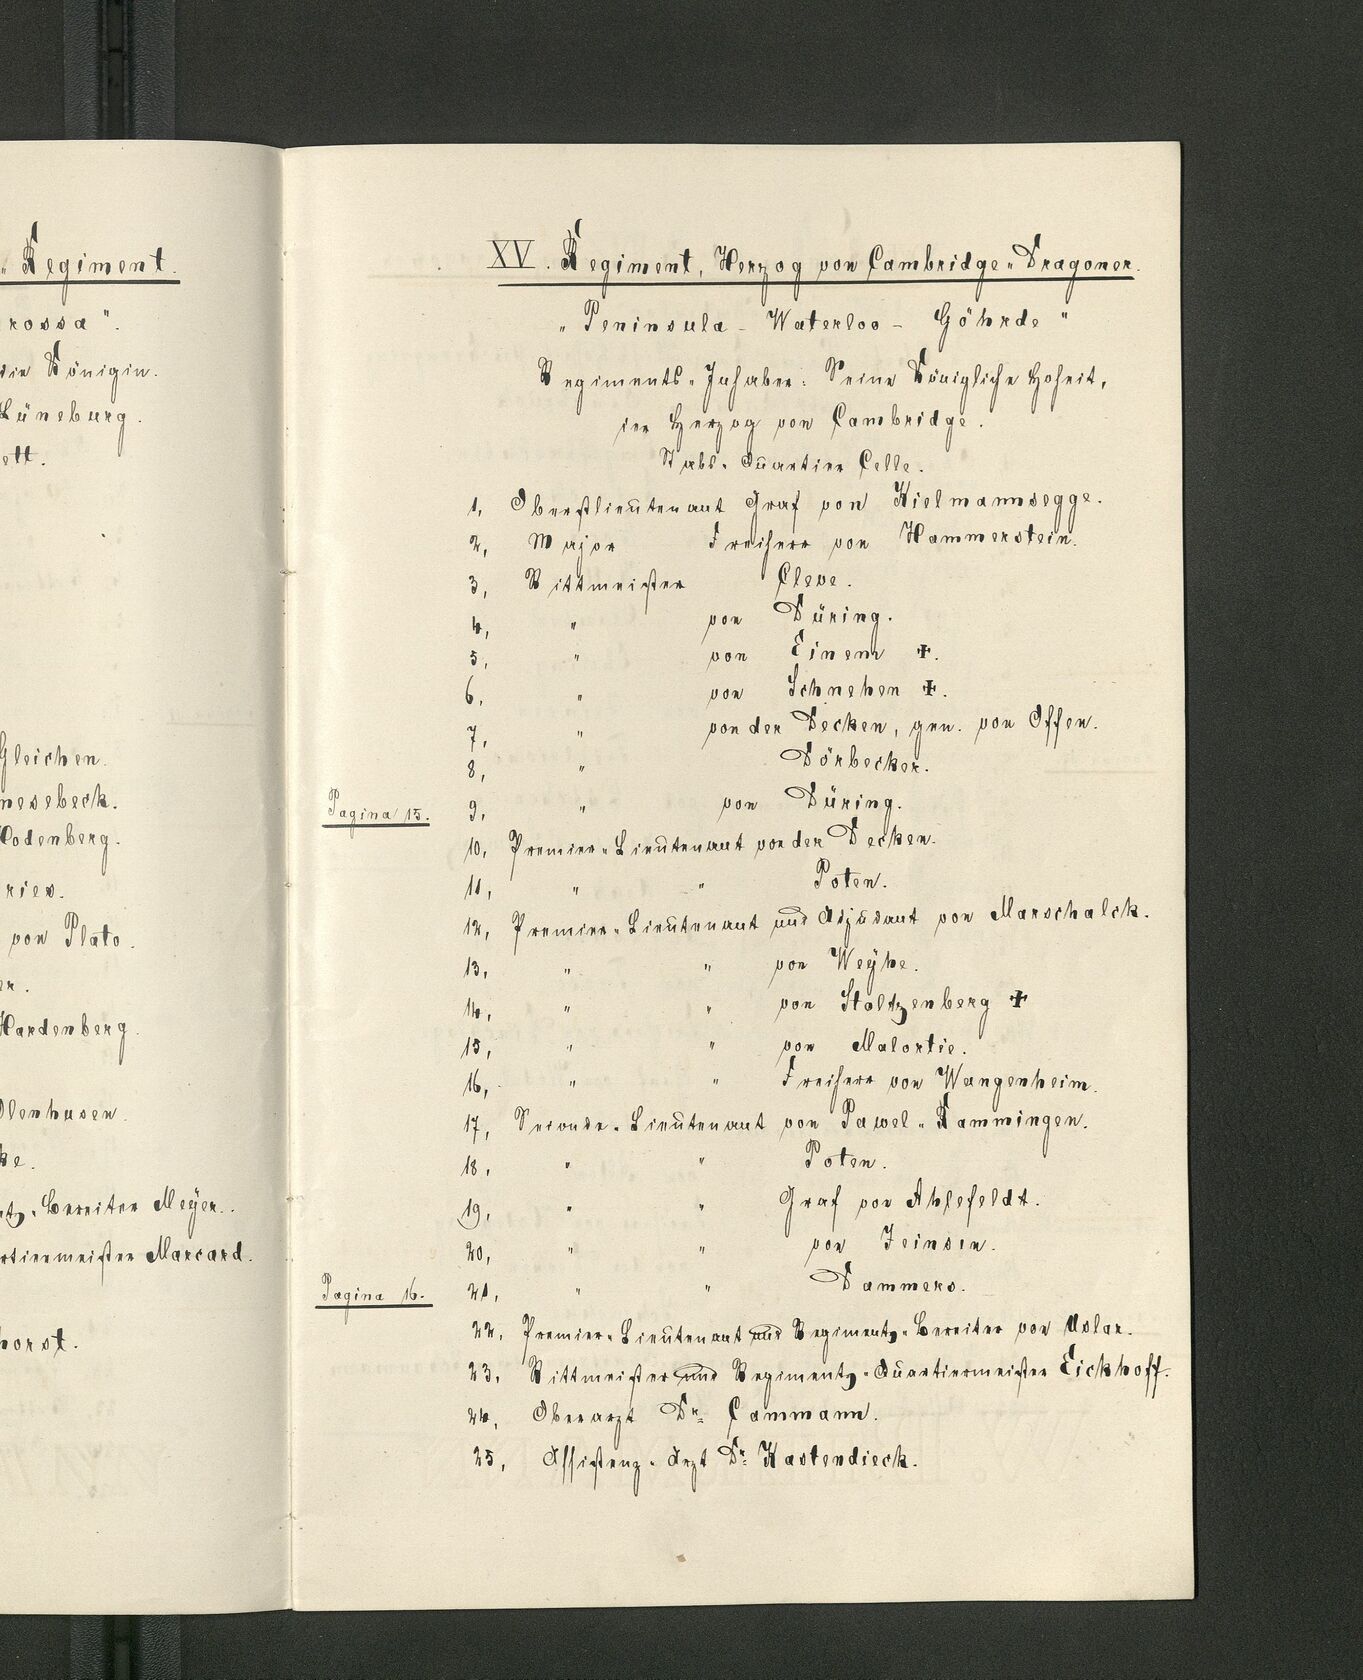 „ Regiment.
rossa".
die Königin.
Lüneburg.
ett.
Gleichen.
nesebeck.
Hodenberg.
ries.
von Plato.
er.
Hardenberg.
Olenhusen.
ke.
Bereiter Meÿer.
rtiermeister Marcard.
horst.
XV. Regiment, Herzog von Cambridge-Dragoner.
„Peninsula - Waterloo - Göhrde"
Regiments-Inhaber: Seine Königliche Hoheit,
der Herzog von Cambridge.
Stabs-Quartier Celle.
1, Oberstlieutenant Graf von Kielmannsegge.
2, Major Freiherr von Hammerstein.
3, Rittmeister Cleve.
4, " von Düring.
5, " von Einem ✝.
6, " von Schnehen ✝.
7, " von der Decken, gen. von Offen.
8, " Dörbecker.
Pagina 15. 9, " von Düring.
10, Premier-Lieutenant von der Decken.
11, " " Poten.
12, Premier-Lieutenant und Adjudant von Marschalck.
13, " " von Weÿhe.
14, " " von Stoltzenberg ✝
15, " " von Malortie.
16, " " Freiherr von Wangenheim.
17, Seconde-Lieutenant von Pawel-Rammingen.
18, " " Poten.
19, " " Graf von Ahlefeldt.
20, " " von Jeinsen.
Pagina 16. 21, " " Dammers.
22, Premier-Lieutenant und Regiments-Bereiter von Uslar.
23, Rittmeister und Regiments-Quartiermeister Eickhoff.
24, Oberarzt Dr. Cammann.
25, Assistenz-Arzt Dr. Kastendieck.